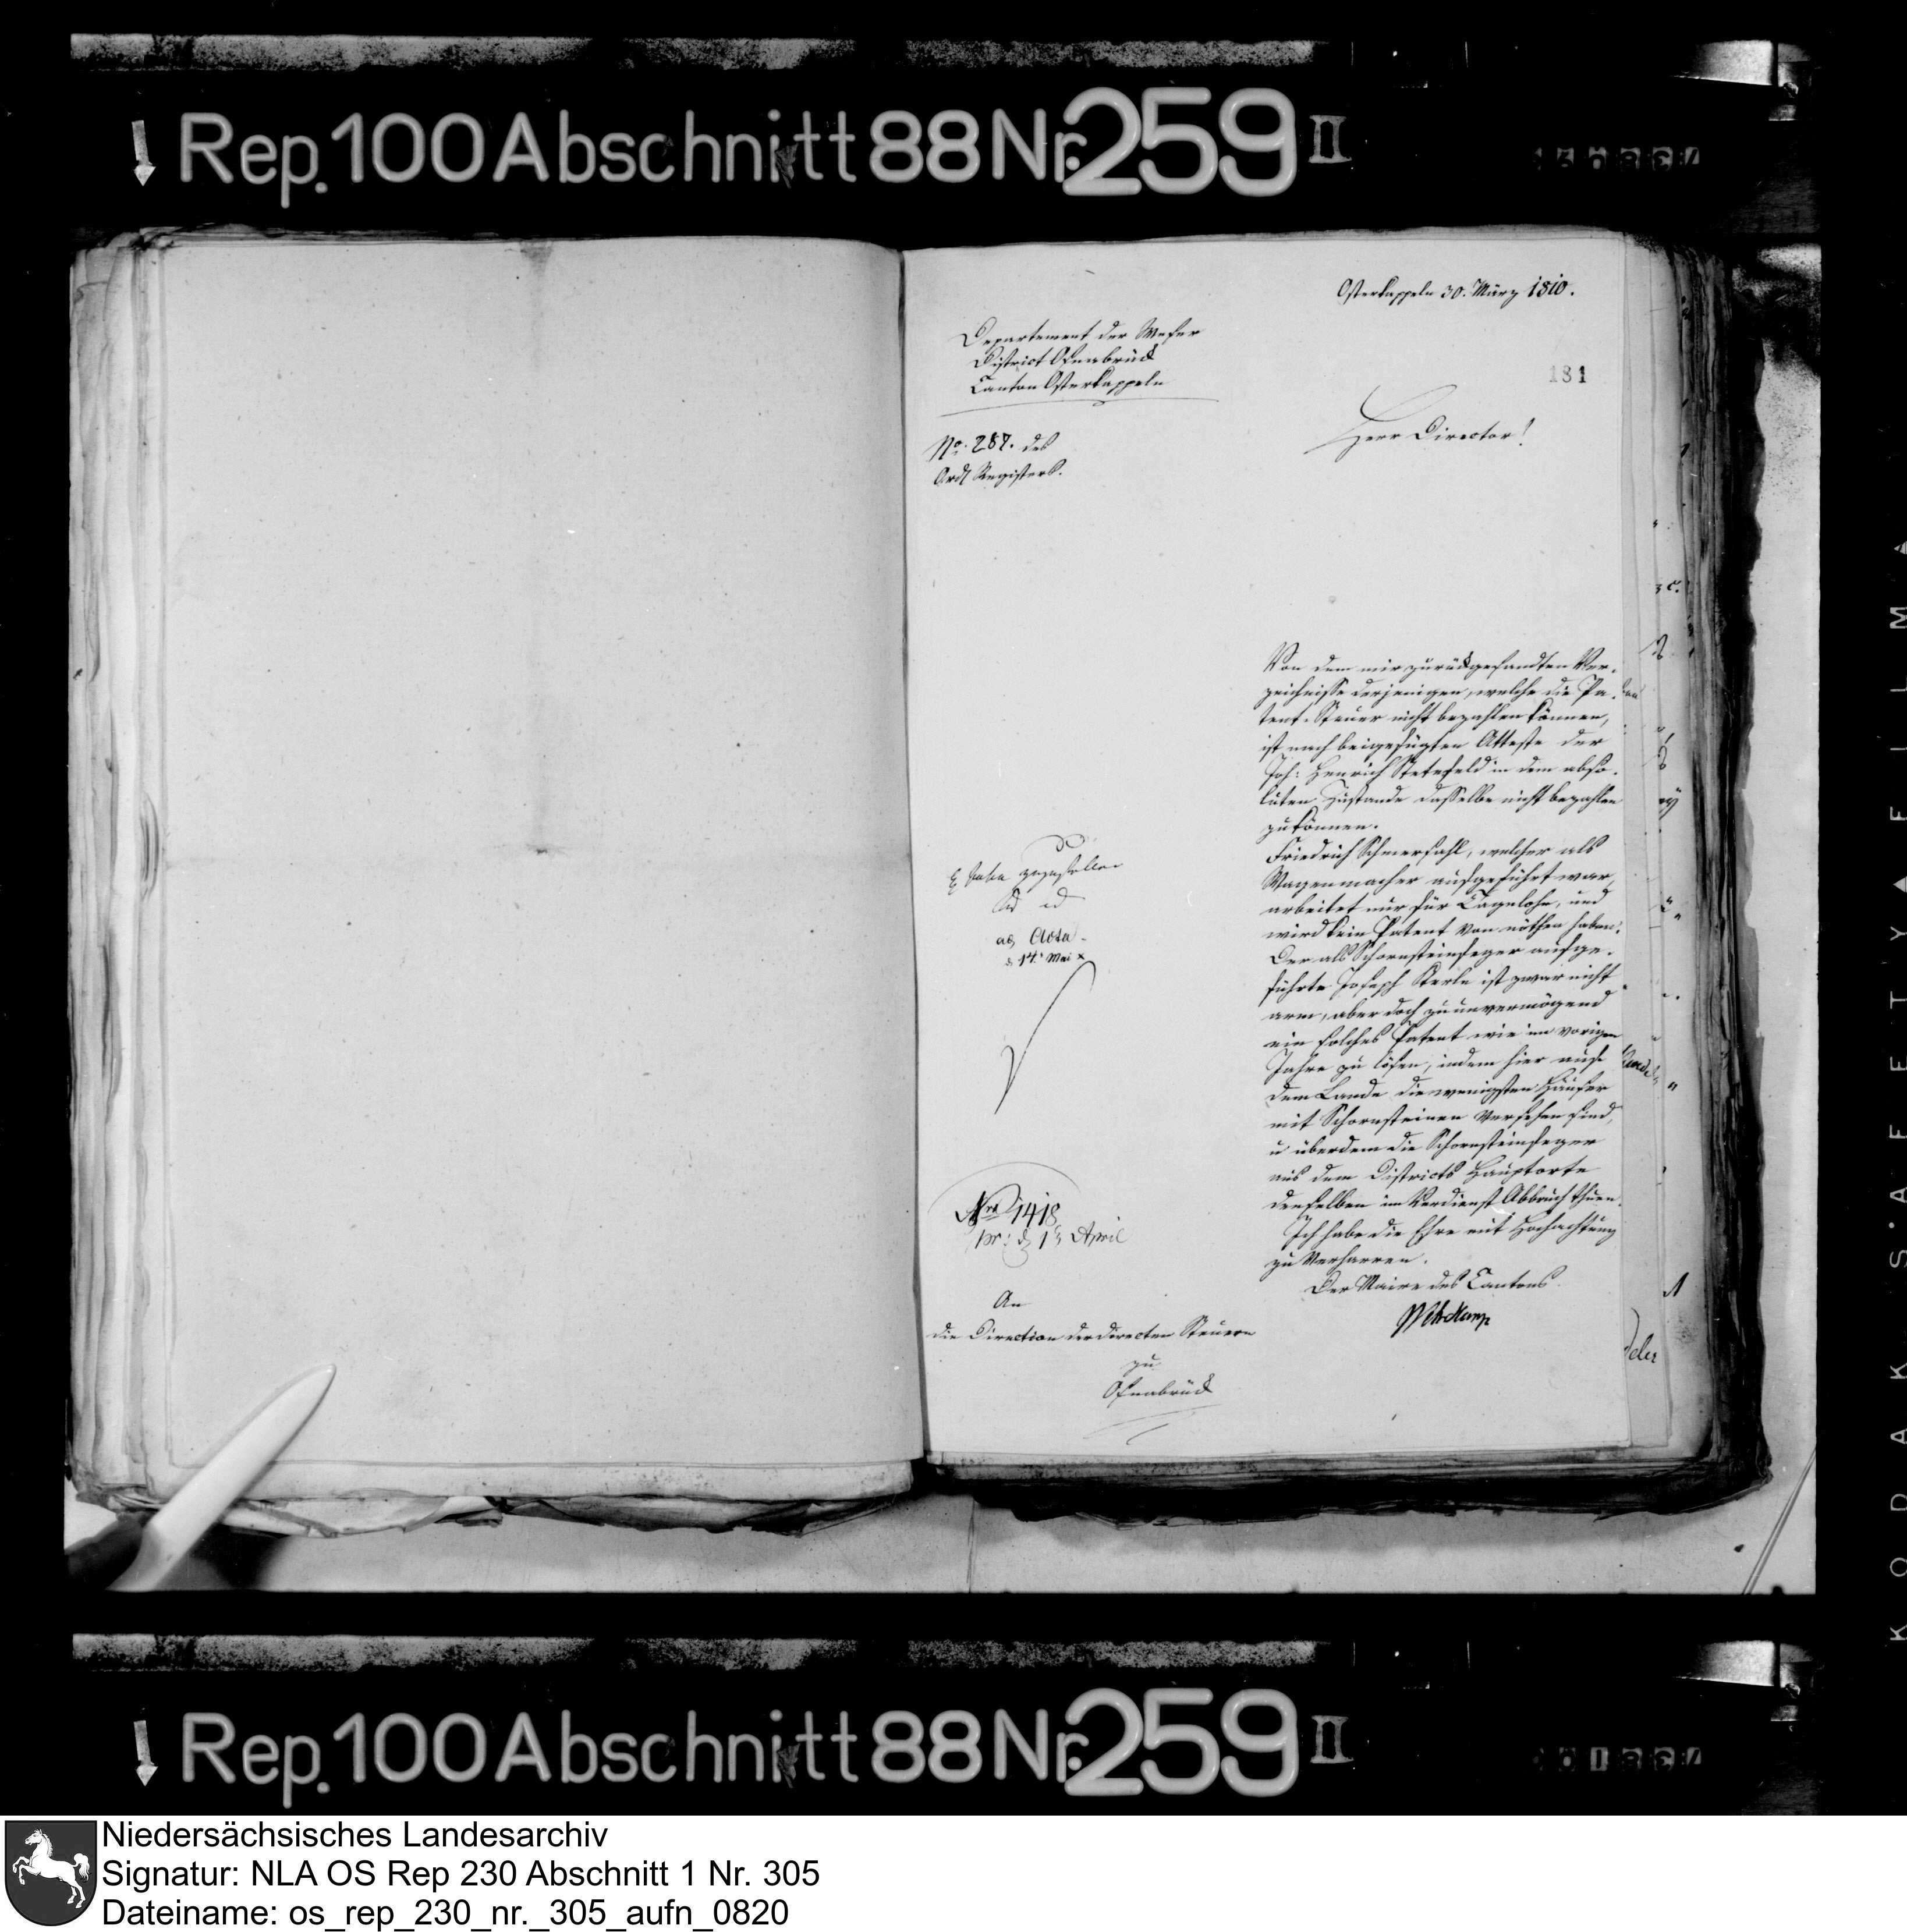 Rep. 100 Abschnitt 88 Nr. 259 II
Osterkappeln 30. März 1810.
Departement der Weser
District Osnabrück
Canton Osterkappeln
181
Herr Director!
No. 287. des
Ord. Registers.
Von dem mir zurückgesandten Ver-
zeichnisse derjenigen, welche die Pa-
tent-Steuer nicht bezahlen können,
ist nach beigefügten Atteste der
Joh: Henrich Stetefeld in dem abso-
luten Zustande dasselbe nicht bezahlen
zu können.
Friedrich Schmersahl, welcher als
Wagenmacher aufgeführt war,
arbeitet nur für Tagelohn, und
wird kein Patent von nöthen haben.
Der als Schornsteinfeger aufge-
führte Joseph Kerle ist zwar nicht
arm, aber doch zu unvermögend
ein solches Patent wie im vorigen
Jahre zu lösen, indem hier auf
dem Lande die wenigsten Häuser
mit Schornsteinen versehen sind,
u überdem die Schornsteinfeger
aus dem Districts Hauptorte
denselben im Verdienst Abbruch thuen.
Ich habe die Ehre mit Hochachtung
zu verharren.
Der Maire des Cantons
Wehrkamp
ad Acta
14. Mai
Nro 1418
pr: d 1 April
An
die Direction der directen Steuern
zu
Osnabrück
KODAK SAFETY FILM
Rep. 100 Abschnitt 88 Nr. 259 II
Niedersächsisches Landesarchiv
Signatur: NLA OS Rep 230 Abschnitt 1 Nr. 305
Dateiname: os_rep_230_nr._305_aufn_0820